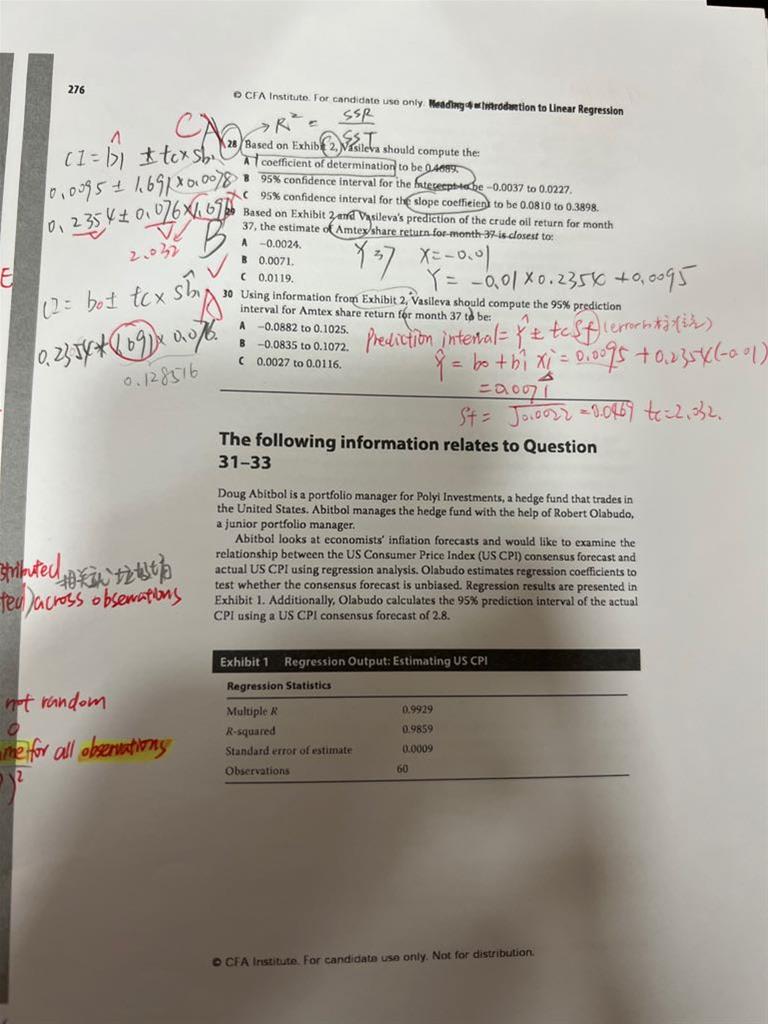 276
© CFA Institute. For candidate use only. Reading 4 ■ Introduction to Linear Regression
→ R² = SSR / SST
CA
CI = b̂1 ± tc × sb̂1
0.0095 ± 1.691 × 0.0078
0.2354 ± 0.076 × 1.691
2.032
28 Based on Exhibit 2, Vasileva should compute the:
A coefficient of determination to be 0.4689.
B 95% confidence interval for the intercept to be −0.0037 to 0.0227.
C 95% confidence interval for the slope coefficient to be 0.0810 to 0.3898.
B
29 Based on Exhibit 2 and Vasileva's prediction of the crude oil return for month
37, the estimate of Amtex share return for month 37 is closest to:
A −0.0024.
B 0.0071.
C 0.0119.
X=−0.01
Y = −0.01 × 0.2354 + 0.0095
tc × sb̂1
0.2354 ± 1.691 × 0.076
0.128516
30 Using information from Exhibit 2, Vasileva should compute the 95% prediction
interval for Amtex share return for month 37 to be:
A −0.0882 to 0.1025.
B −0.0835 to 0.1072.
C 0.0027 to 0.0116.
Prediction interval = Ŷ ± tc Sf (error
Ŷ = b0 + b̂1 Xi = 0.0095 + 0.2354×(−0.01)
= 0.0071
Sf = √0.0022 = 0.0469 tc = 2.032.
The following information relates to Question
31–33
Doug Abitbol is a portfolio manager for Polyi Investments, a hedge fund that trades in
the United States. Abitbol manages the hedge fund with the help of Robert Olabudo,
a junior portfolio manager.
Abitbol looks at economists' inflation forecasts and would like to examine the
relationship between the US Consumer Price Index (US CPI) consensus forecast and
actual US CPI using regression analysis. Olabudo estimates regression coefficients to
test whether the consensus forecast is unbiased. Regression results are presented in
Exhibit 1. Additionally, Olabudo calculates the 95% prediction interval of the actual
CPI using a US CPI consensus forecast of 2.8.
stributed
ted) across observations
not random
0
me for all observations
)²
Exhibit 1 Regression Output: Estimating US CPI
Regression Statistics
Multiple R 0.9929
R-squared 0.9859
Standard error of estimate 0.0009
Observations 60
© CFA Institute. For candidate use only. Not for distribution.